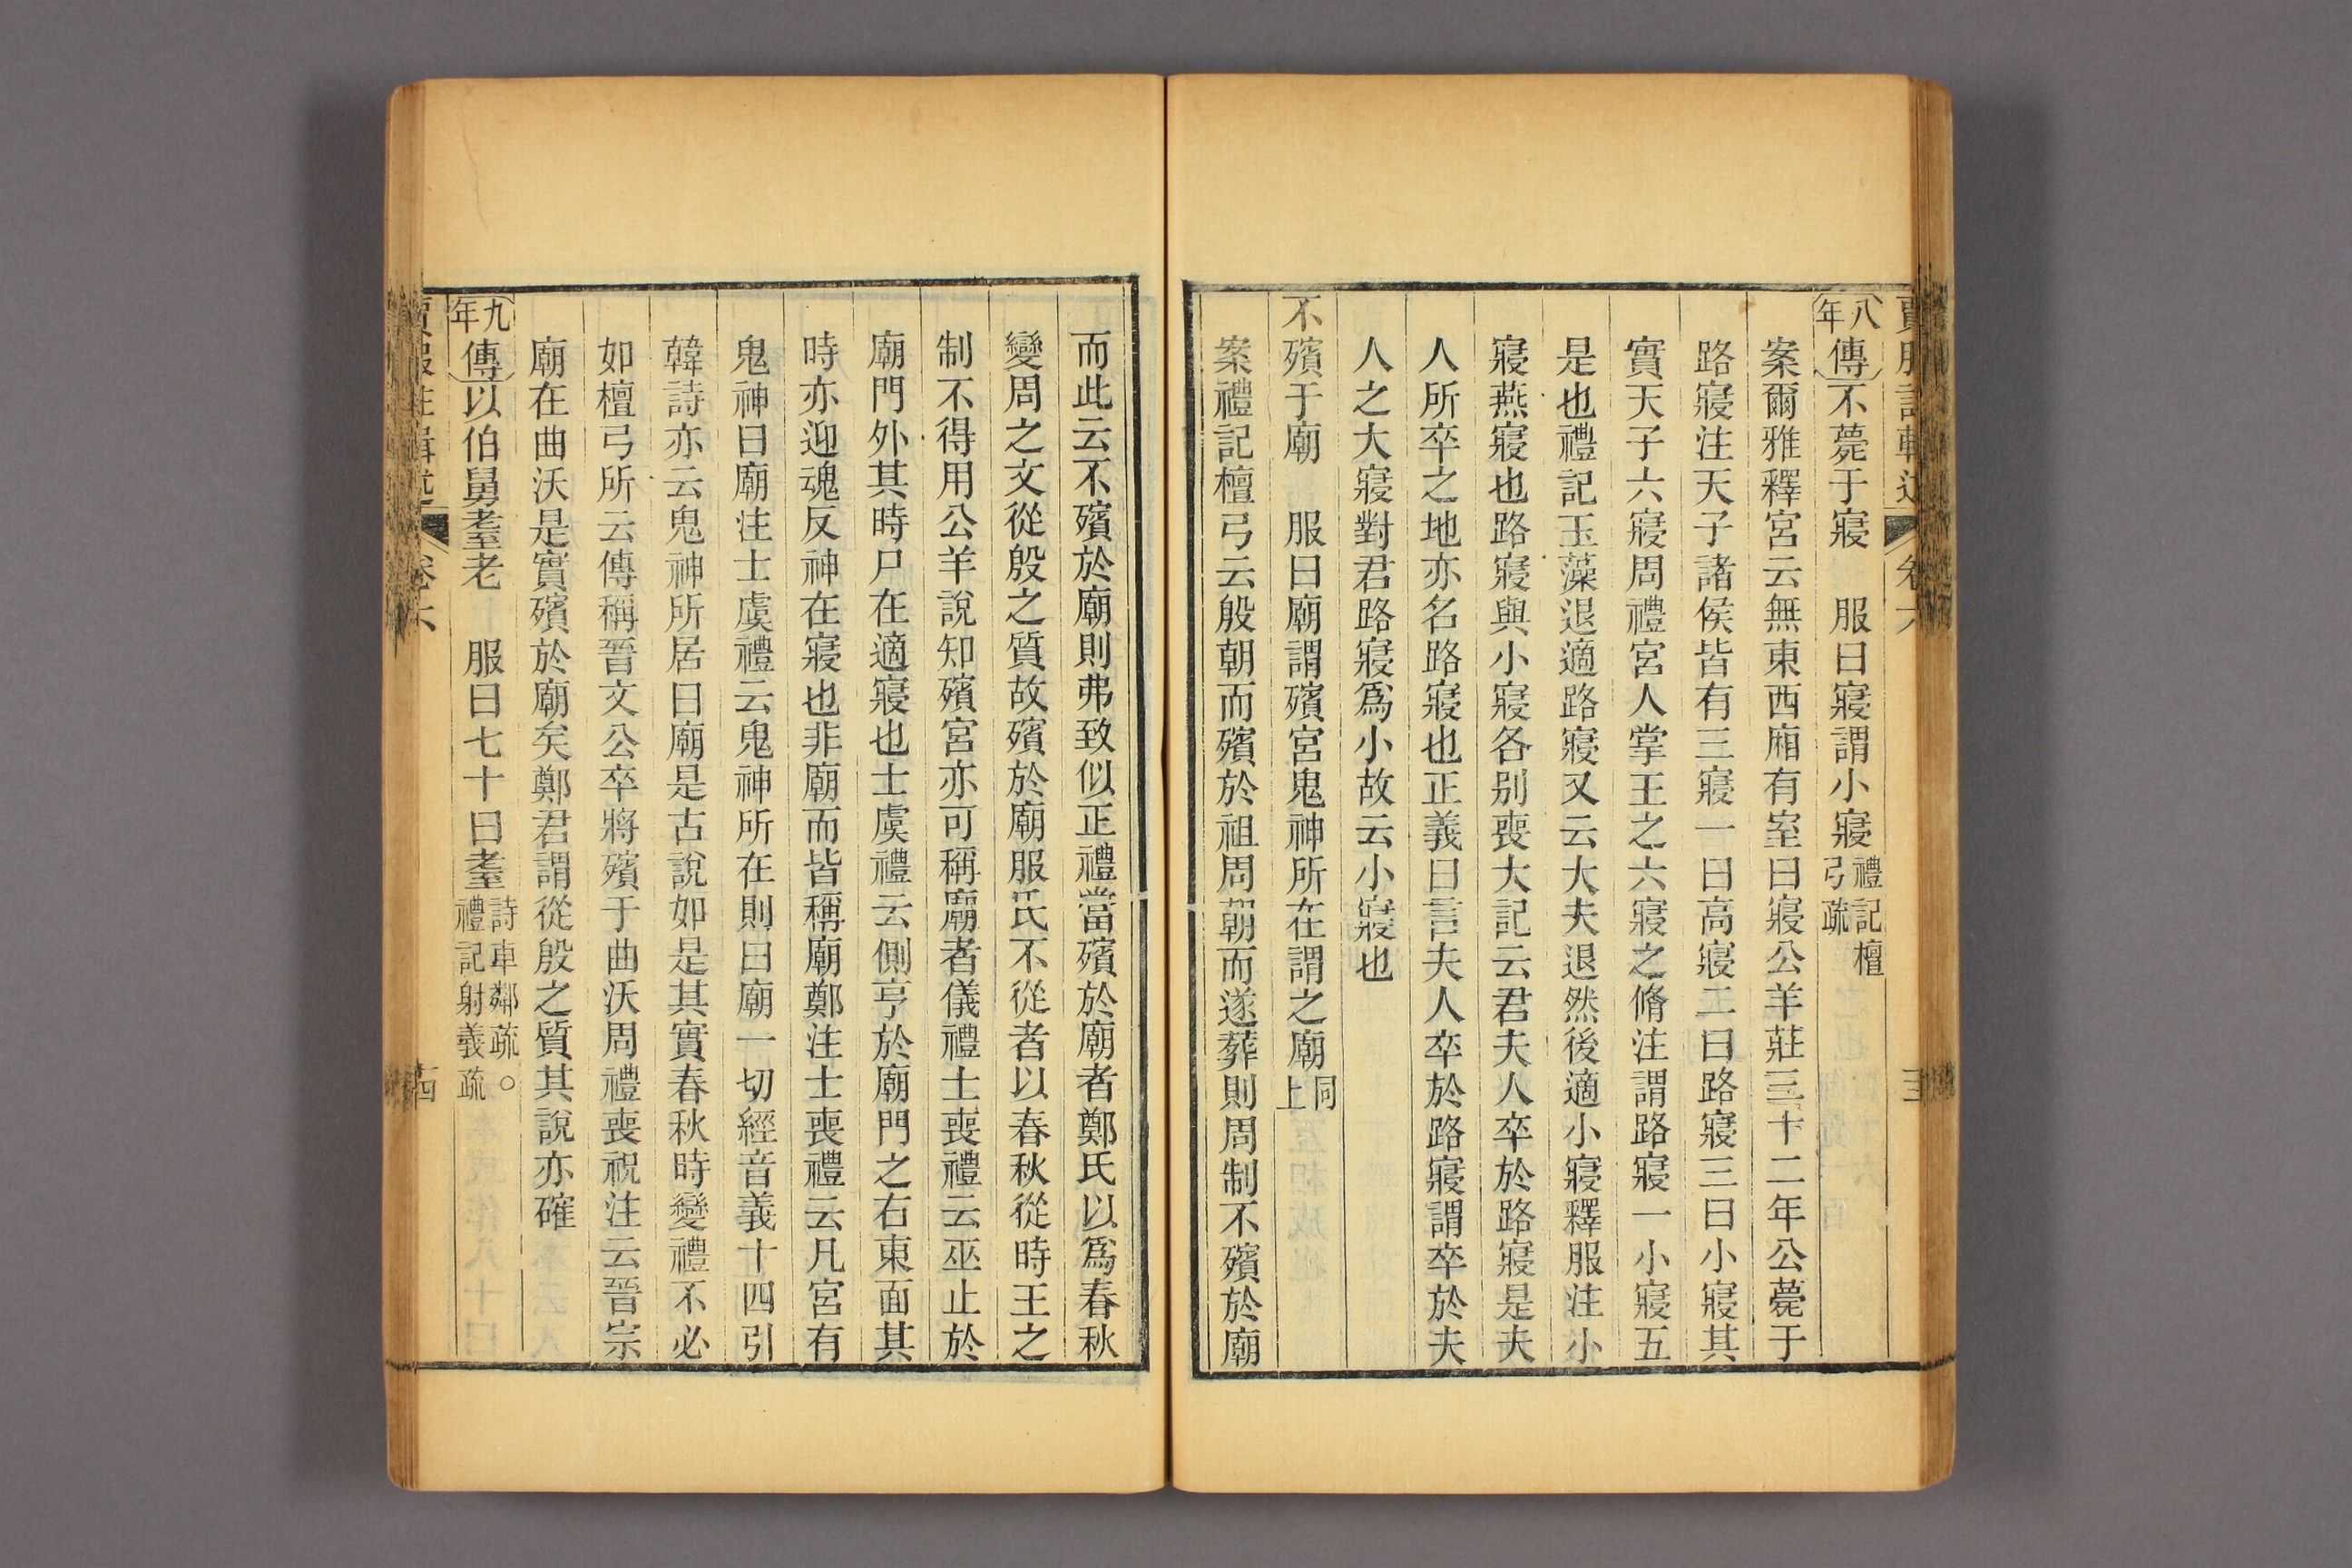 八年傳不薨于寢　服曰寢謂小寢禮記檀弓疏
案爾雅釋宮云無東西廂有室曰寢公羊莊三十二年公薨于
路寢注天子諸侯皆有三寢一曰高寢二曰路寢三曰小寢其
實天子六寢周禮宮人掌王之六寢之脩注謂路寢一小寢五
是也禮記玉藻退適路寢又云大夫退然後適小寢釋服注小
寢燕寢也路寢與小寢各別喪大記云君夫人卒於路寢是夫
人所卒之地亦名路寢也正義曰言夫人卒於路寢謂卒於夫
人之大寢對君路寢爲小故云小寢也
不殯于廟　服曰廟謂殯宮鬼神所在謂之廟同上
案禮記檀弓云殷朝而殯於祖周朝而遂葬則周制不殯於廟
而此云不殯於廟則弗致似正禮當殯於廟者鄭氏以爲春秋
變周之文從殷之質故殯於廟服氏不從者以春秋從時王之
制不得用公羊說知殯宮亦可稱廟者儀禮士喪禮云巫止於
廟門外其時尸在適寢也士虞禮云側亨於廟門之右東面其
時亦迎魂反神在寢也非廟而皆稱廟鄭注士喪禮云凡宮有
鬼神曰廟注士虞禮云鬼神所在則曰廟一切經音義十四引
韓詩亦云鬼神所居曰廟是古說如是其實春秋時變禮不必
如檀弓所云傳稱晉文公卒將殯于曲沃周禮喪祝注云晉宗
廟在曲沃是實殯於廟矣鄭君謂從殷之質其說亦確
九年傳以伯舅耋老　服曰七十曰耋詩車鄰疏○禮記射義疏
卷六